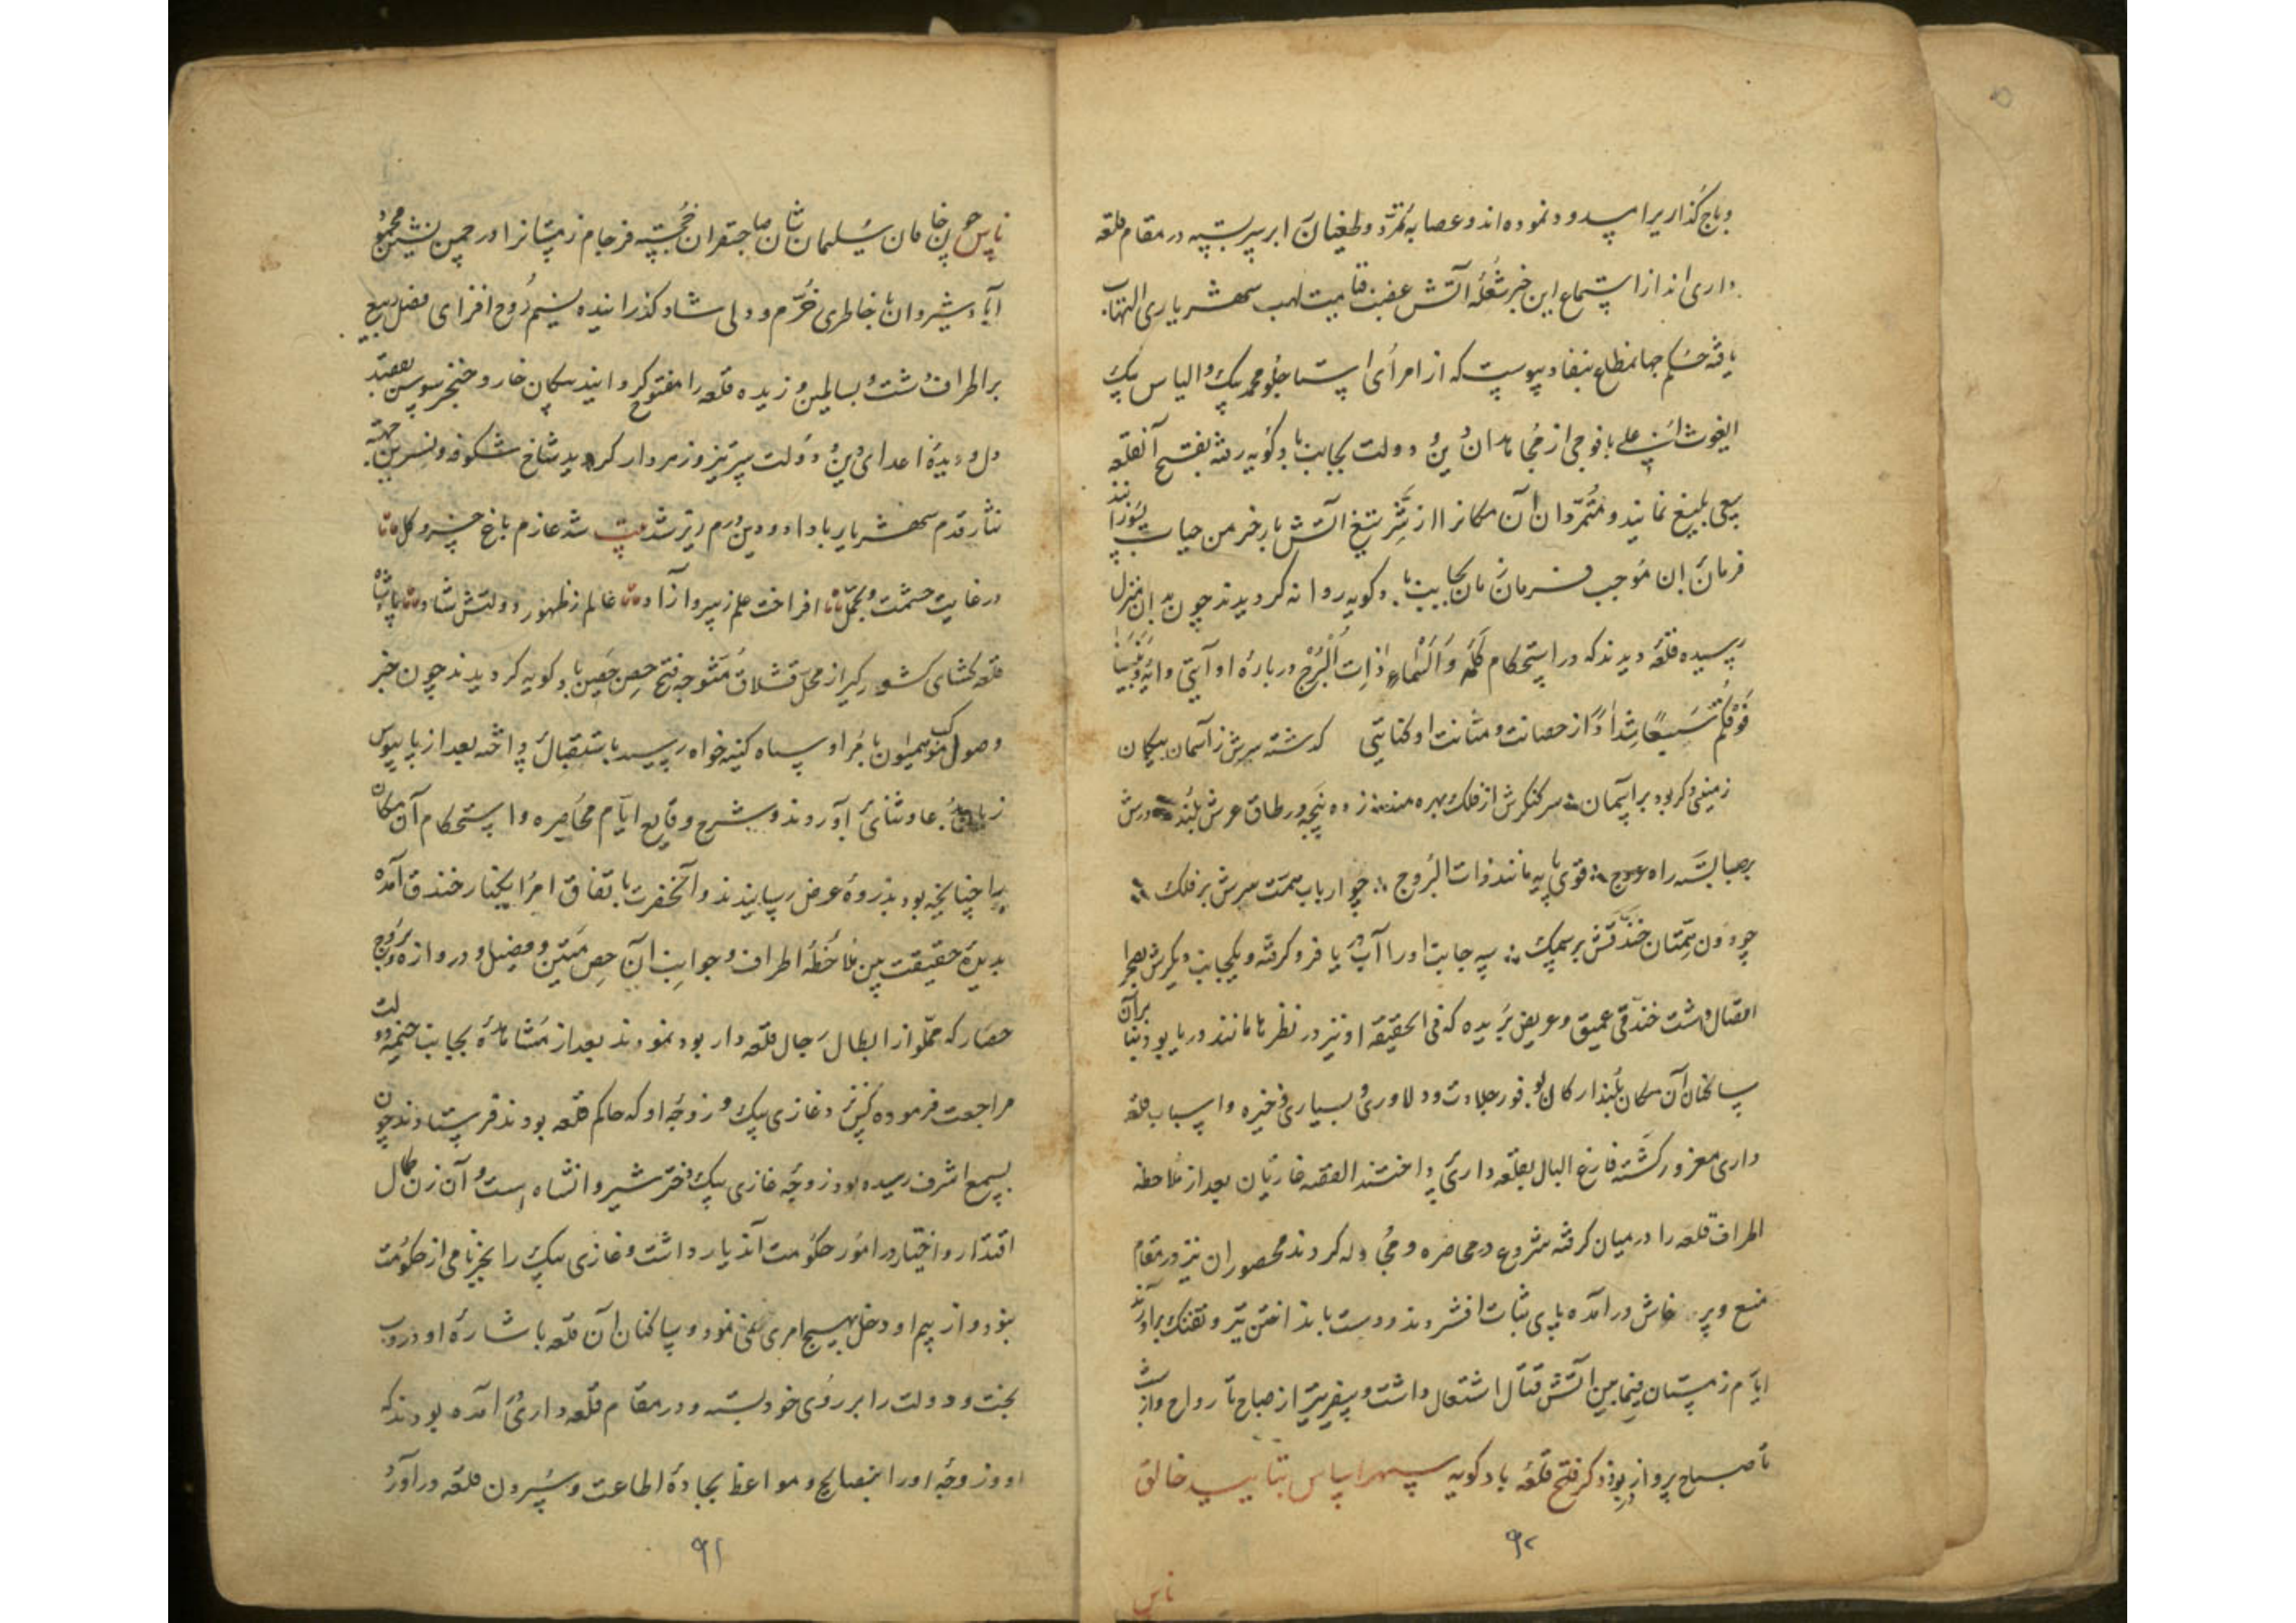 وباج گذاریرا پدرود نموده‌اند و عصابهٔ تمرّد و طغیان را بر سر بسته در مقام قلعه
داری اند از استماع این خبر شعلهٔ آتش غضب قیامت لهب شهریاری التهاب
یافته حکم جهانمطاع بنفاد پیوست که از امرای استاجلو محمد بیک و الیاس بیک
ایغوث اغلی با فوجی از مجاهدان دین و دولت بجانب بادکوبه رفته بفتح آنقلعه
سعی بلیغ نمایند و متمرّدان آن مکانرا از شرر تیغ آتش بار خرمن حیات بسوزانند
فرمان بران موجب فرمان زمان بجانب بادکوبه روانه گردیدند چون بدان منزل
رسیده قلعهٔ دیدند که در استحکام کلمه والسّماء ذات البروج دربارهٔ او آیتی و آیهٔ وبنینا
فوقکم سبعا شدادا از حصانت و متانت او کنایتی گذشته سرش ز آسمان بیکان
زمینی دگر بود بر آسمان سر کنگرش از فلک بهره مند زده پنجه در طاق عرش بلند درش
بر صبا بسته راه عروج قوی پایه مانند ذات البروج چو ارباب همّت سرش بر فلک
چو دون همّتان خندقش بر سمک سه جانب او را آب دریا فرو گرفته و یکجانب دیگرش بصحرا
اتصال داشت خندقی عمیق و عریض بریده که فی الحقیقه او نیز در نظرها مانند دریا بود بنا بر آن
ساکنان آن مکان بلند ارکان بوفور جلادت و دلاوری و بسیاری ذخیره و اسباب قلعه
داری مغرور گشته فارغ البال بقلعه داری پرداختند القصه غازیان بعد از ملاحظه
اطراف قلعه را در میان گرفته شروع در محاصره و مجادله کردند محصوران نیز در مقام
منع و پرخاش درآمده پای ثبات افشردند و دست بانداختن تیر و تفنک برآوردند
ایام زمستان فیمابین آتش قتال اشتعال داشت و سفیر تیر از صباح تا رواح و از شب
تا صباح پرواز بود ذکر فتح قلعه بادکوبه سپهر اساس بتایید خالق
ناس
۹۲
ناس چون خاقان سلیمان شان صاحبقران خجسته فرجام زمستانرا در چمن نشیمن محمود
آباد شیروان با خاطری خرّم و دلی شاد گذرانیده نسیم روح افزای فصل ربیع
بر اطراف دشت و بساطین وزیده قلعه را مفتوح گردانید پیکان خار و خنجر سوسن بقصد
دل و دیدهٔ اعدای دین و دولت سر تیز و زهردار گردید شاخ شکوفه و نسرین جهته
نثار قدم شهریار با داد و دین درم ریز شد بیت شد عازم باغ خسرو گل
در غایت حشمت و تجمل افراخت علم ز سرو آزاد عالم ز ظهور دولتش شاد پادشاه
قلعه گشای کشورگیر از محل قشلاق متوجه فتح حصن حصین بادکوبه گردیدند چون خبر
وصول موکب همیون با مرا و سپاه کینه خواه رسید باستقبال پرداخته بعد از پایبوس
زبان بدعا و ثنای آوردند و شرح وقایع ایام محاصره و استحکام آن مکان
را چنانچه بود بذروهٔ عرض رسانیدند و آنحضرت باتفاق امرا بکنار خندق آمده
بدیدهٔ حقیقت بین ملاحظهٔ اطراف و جوانب آن حصن متین و فصیل و دروازه و بروج
حصار که مملو از ابطال رجال قلعه دار بود نمودند بعد از مشاهدهٔ بجانب خیمه دولت
مراجعت فرموده کس نزد غازی بیک و زوجهٔ او که حاکم قلعه بودند فرستادند چون
بسمع اشرف رسیده بود زوجهٔ غازی بیک دختر شیروانشاه است و آن زن کمال
اقتدار و اختیار در امور حکومت آندیار داشت و غازی بیک را بجز نامی از حکومت
نبود و از بیم او دخل بهیچ امری نمی نمود و ساکنان آن قلعه باشارهٔ او دروب
بخت و دولت را بر روی خود بسته و در مقام قلعه داری آمده بودند که
او و زوجهٔ او را بنصایح و مواعظ بجادهٔ اطاعت و سپردن قلعه درآورد
۹۱